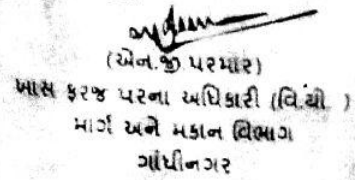 (એન.જી.પરમાર)
ખાસ ફરજ પરના અધિકારી (વિ.યો )
માર્ગ અને મકાન વિભાગ
ગાંધીનગર